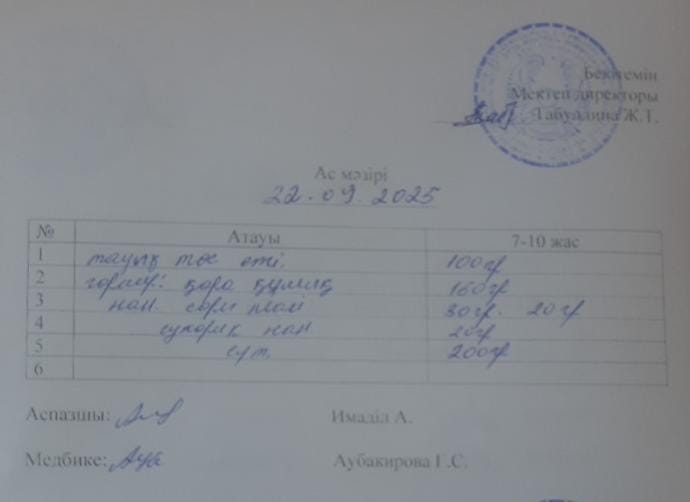 Бекітемін
Мектеп директоры
Табулдина Ж.Т.
Ас мәзірі
22.09.2025
№ Атауы 7-10 жас
1 тауық төс еті. 100гр
2 гарнир: қара құмық 160гр
3 нан. сары май 30гр. 20гр
4 сухарик нан 20гр
5 сүт. 200гр
6
Аспазшы: Имаділ А.
Медбике: Аубакирова Г.С.